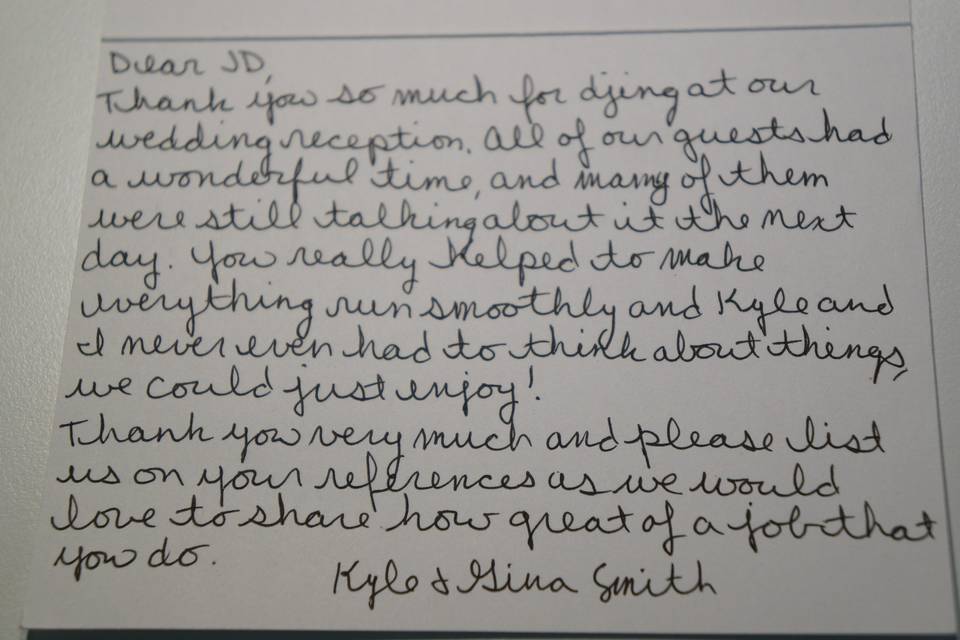 Dear JD,
Thank you so much for djing at our
wedding reception. All of our guests had
a wonderful time, and many of them
were still talking about it the next
day. You really helped to make
everything run smoothly and Kyle and
I never even had to think about things,
we could just enjoy!
Thank you very much and please list
us on your references as we would
love to share how great of a job that
you do.
Kyle & Gina Smith